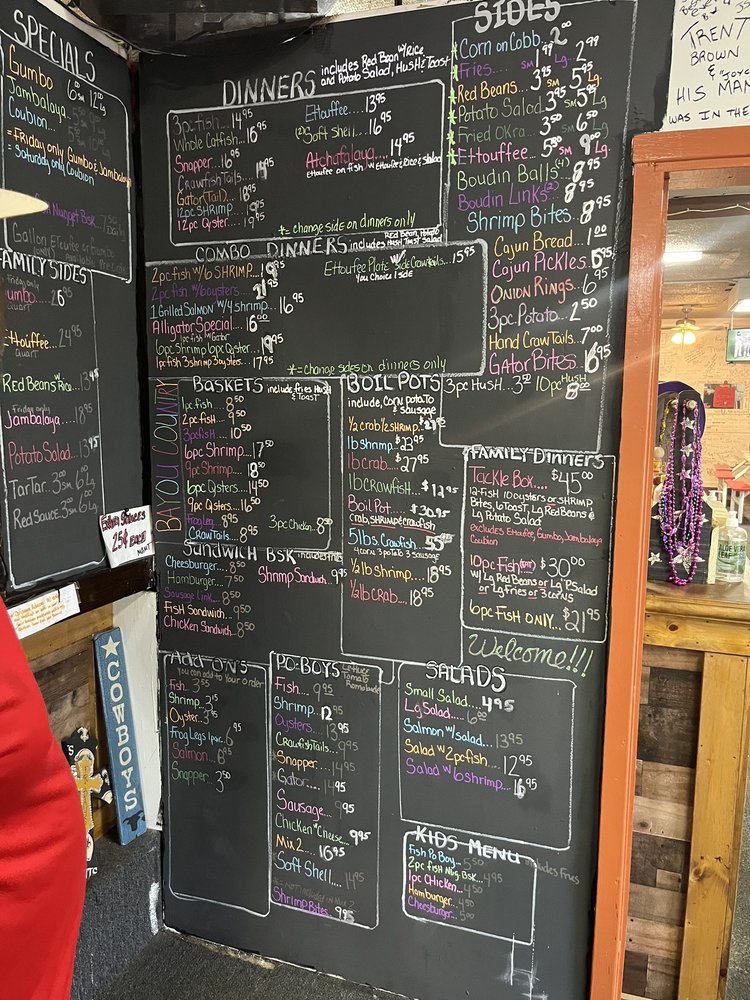 SPECIALS
Gumbo 6 sm 12 Lg
Jambalaya
Coubion
= Friday only Gumbo & Jambalaya
= Saturday only Coubion
Nugget Bsk.
Gallon Etoufee or Gumbo
FAMILY SIDES
Friday only
Gumbo 26.95
Quart
Etouffee 24.95
Quart
Red Beans w/ Rice
Friday only
Jambalaya.... 18.95
Potato Salad... 13.95
TarTar. 3.00 sm 6.00 Lg
Red Sauce. 3.00 sm 6.00 Lg
Extra Sauces
25¢ Each
DINNERS includes Red Bean w/ Rice
and Potato Salad, Hush & Toast
3pc fish.... 14.95
Whole Catfish... 16.95
Snapper... 16.95
Crawfish Tails
Gator Tail... 18.95
12pc SHRIMP... 19.95
12pc Oyster... 19.95
Etouffee 13.95
(2) Soft shell... 16.95
Atchafalaya.... 14.95
ETouffee on fish w/ Etouffee & Rice & salad
*= change side on dinners only
COMBO DINNERS includes Red Bean, Potato
Hush Toast Salad
2pc fish w/ 6 SHRIMP... 19.95
2pc fish w/ 6 oysters... 21.95
1 Grilled Salmon w/ 4 shrimp... 16.95
Alligator Special... 16.00
1pc fish w/ Gator
6pc Shrimp 6pc Oyster... 19.95
1pc fish 3 shrimp 3 oysters... 17.95
Etouffee Plate w/ Side Crawtails... 15.95
You Choice 1 side
*= change sides on dinners only
SIDES
*Corn on Cobb.. 2.00
*Fries... 1.99 sm 2.99 Lg
*Red Beans... 3.95 sm 5.95 Lg.
*Potato Salad... 3.95 sm 5.95 Lg.
*Fried Okra... 3.50 sm 6.50 Lg
*Etouffee... 5.50 sm 9.00 Lg.
Boudin Balls (4) 8.95
Boudin Links (2) 8.95
Shrimp Bites.. 8.95
Cajun Bread... 1.00
Cajun Pickles 6.95
Onion Rings.. 6.95
3pc Potato.. 2.50
Hand CrawTails.. 7.00
Gator Bites.. 16.95
3pc Hush... 3.50 10pc Hush 8.00
BAYOU COUNTRY
BASKETS include, fries Hush
& TOAST
1pc fish... 8.50
2pc fish... 9.50
3pc fish... 10.50
6pc Shrimp... 17.50
9pc Shrimp... 18.50
6pc Oysters... 14.50
9pc Oysters... 16.50
Frog Leg... 8.95
CrawTails... 8.95
3pc Chicken.. 8.50
SANDWICH BSK includes Fries
Cheesburger... 8.50
Hamburger... 7.50
Sausage Link... 8.50
Fish Sandwich... 9.50
Chicken Sandwich.. 8.50
Shrimp Sandwich.. 9.95
BOIL POTS
include, Corn, potato
& sausage
1/2 crab 1/2 SHRIMP..
1lb shrimp... $23.95
1lb crab.... $27.95
1lb crawfish... $12.95
Boil Pot... $30.95
crab, shrimp & crawfish
5 lbs. Crawfish...
4 corn 3 potato 3 sausage
1/2 lb shrimp... 18.95
1/2 lb CRAB... 18.95
FAMILY DINNERS
Tackle Box.... $45.00
12-Fish 10 oysters or SHRIMP
Bites, 6 Toast, Lg Red Beans &
Lg Potato Salad
excludes Etouffee, Gumbo, Jambalaya
Coubian
10pc Fish $30.00
w/ Lg Red Beans or Lg P. Salad
or Lg Fries or 3 corns
6pc Fish ONLY... $21.95
Welcome!!!
ADD ON'S
You can add to your order
Fish. 3.55
Shrimp. 3.15
Oyster. 3.45
Frog Legs 1pair. 6.95
Salmon... 8.95
Snapper... 3.50
PO-BOYS Lettuce
Tomato
Romolaude
Fish... 9.95
Shrimp... 12.95
Oysters... 13.95
Crawfish Tails... 9.95
Snapper... 14.95
Gator... 14.95
Sausage... 9.95
Chicken w/ Cheese... 9.95
Mix 2... 16.95
Soft Shell.... 14.95
Shrimp Bites... 9.95
SALADS
Small Salad... 4.95
Lg Salad.... 6.00
Salmon w/ salad... 13.95
Salad w/ 2pc fish... 12.95
Salad w/ 6 shrimp... 16.95
KIDS MENU includes Fries
Fish Po Boy... 5.50
2pc fish Nug. Bsk... 4.95
1pc Chicken... 4.50
Hamburger... 4.50
Cheesburger... 5.00
COWBOYS
TRENT
BROWN
& "JOYCE
HIS MAMA
WAS IN THE
ALOE VERA